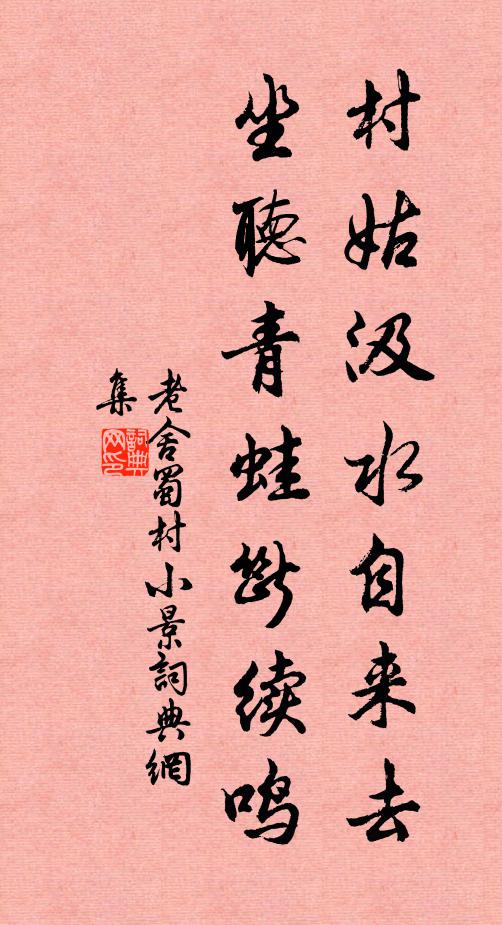 村姑汲水自来去
坐聴青蛙断续鸣
老舍蜀村小景詞典網
集
詞典
网印